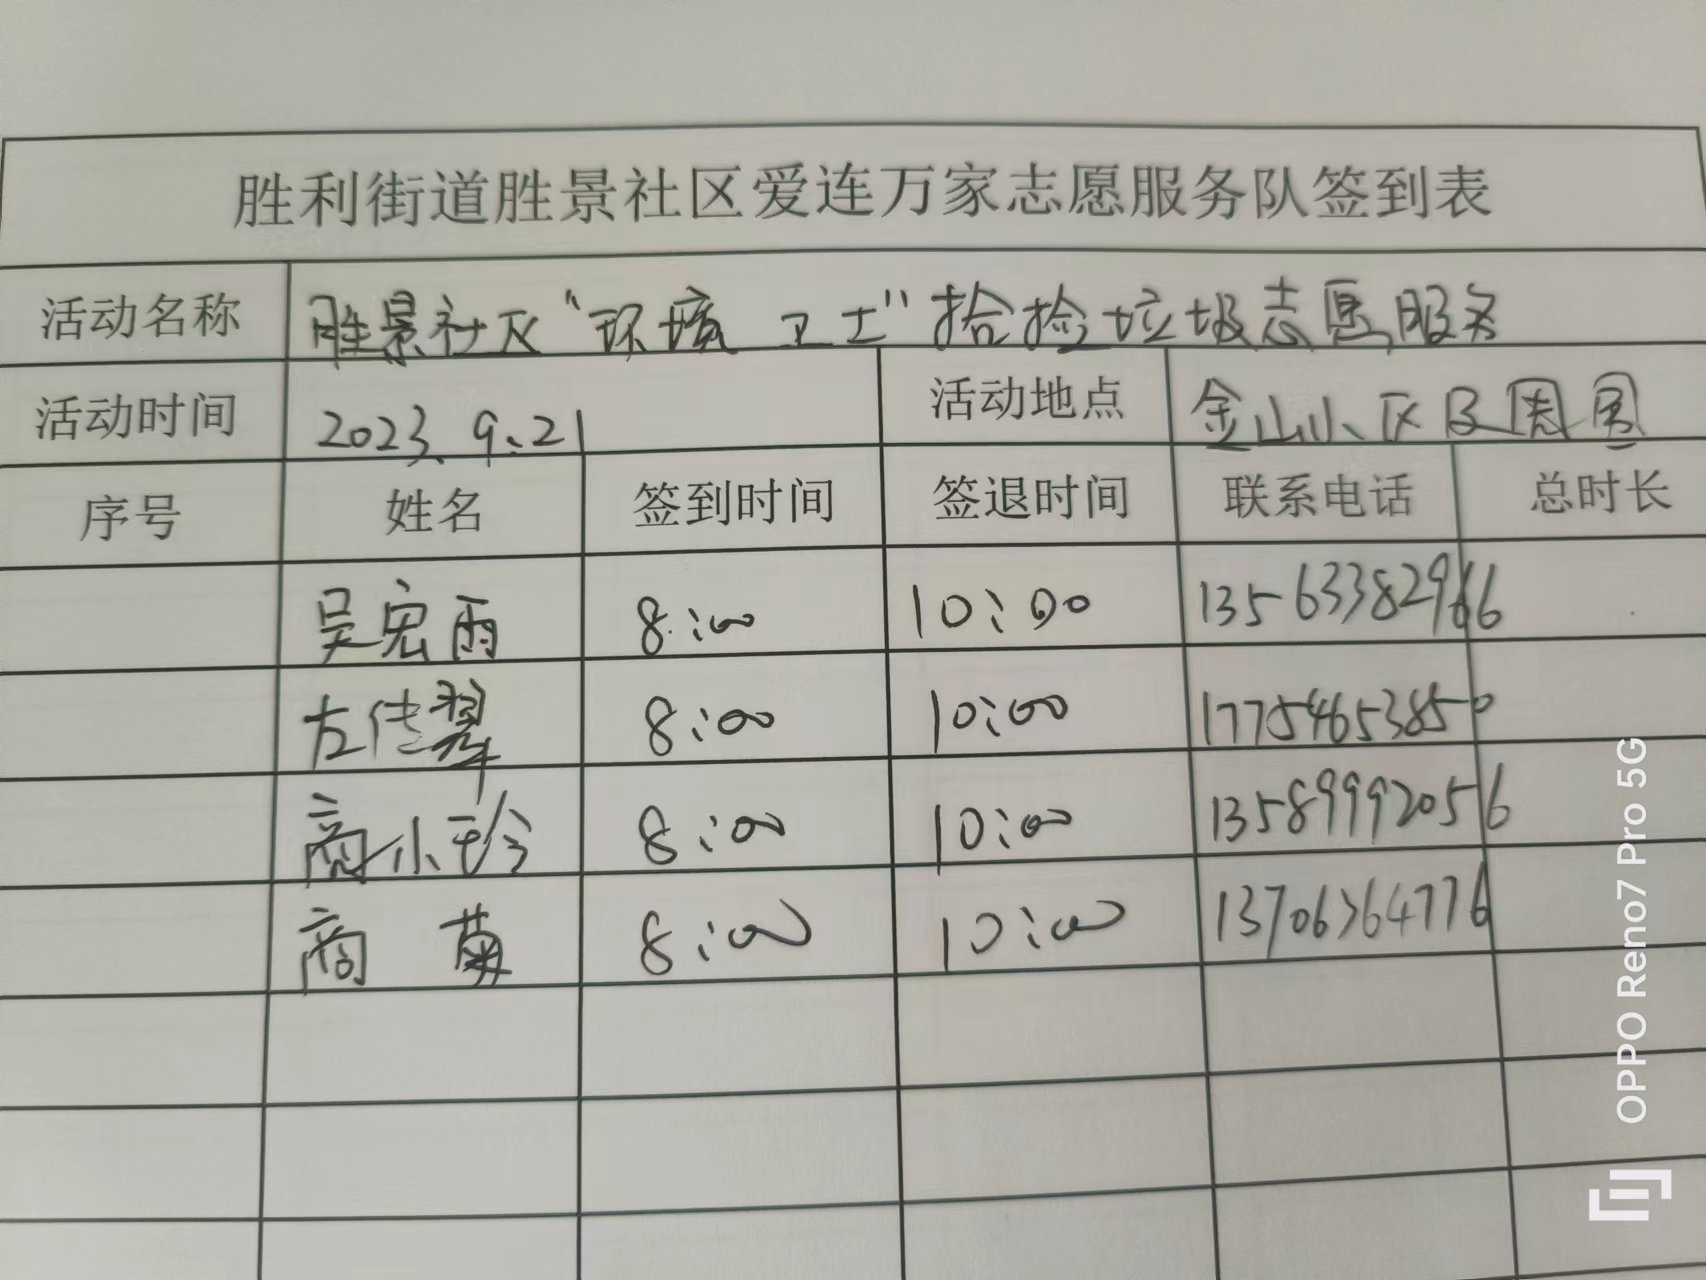 胜利街道胜景社区爱连万家志愿服务队签到表
活动名称 胜景社区“环境卫士”拾捡垃圾志愿服务
活动时间 2023.9.21 活动地点 金山小区及周围
序号 姓名 签到时间 签退时间 联系电话 总时长
吴宏雨 8:00 10:00 13563382966
左传翠 8:00 10:00 17754653850
商小珍 8:00 10:00 13589992056
商菊 8:00 10:00 13706364776
OPPO Reno7 Pro 5G